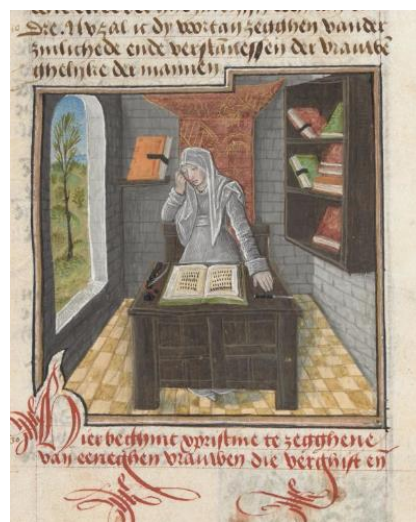 dre. Nu zal ic dy voortan zegghen vander
zinlichede ende verstannessen der vrauwen
ghelijke der mannen
Hier beghint xpristine te zegghene
van eeneghen vrauwen die verghift en